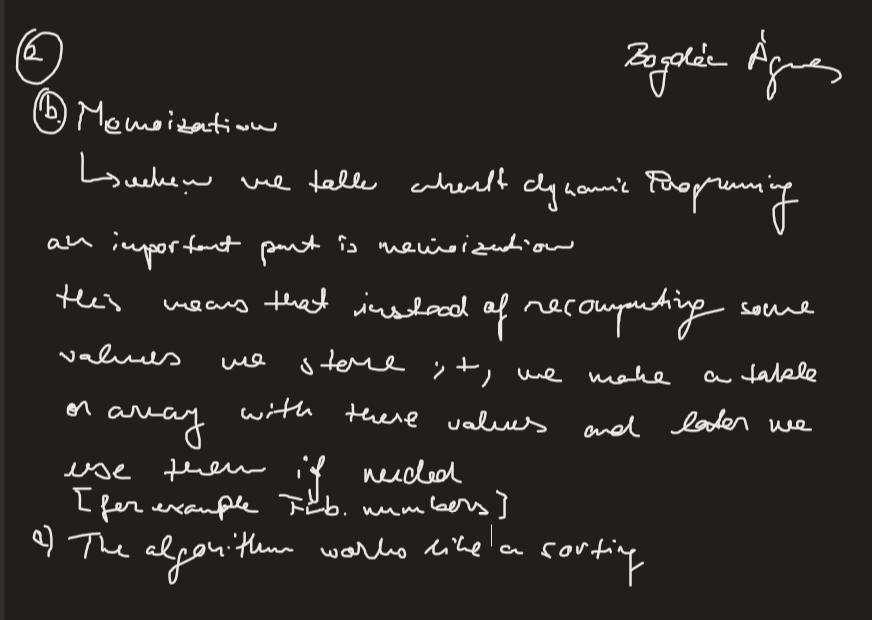 2 Bogdán Ágnes
b. Memoization
↳ when we talk about dynamic Programming
an important part is memoization
this means that instead of recomputing some
values we store it, we make a table
or array with these values and later we
use them if needed
[for example Fib. numbers]
a) The algorithm works like a sorting